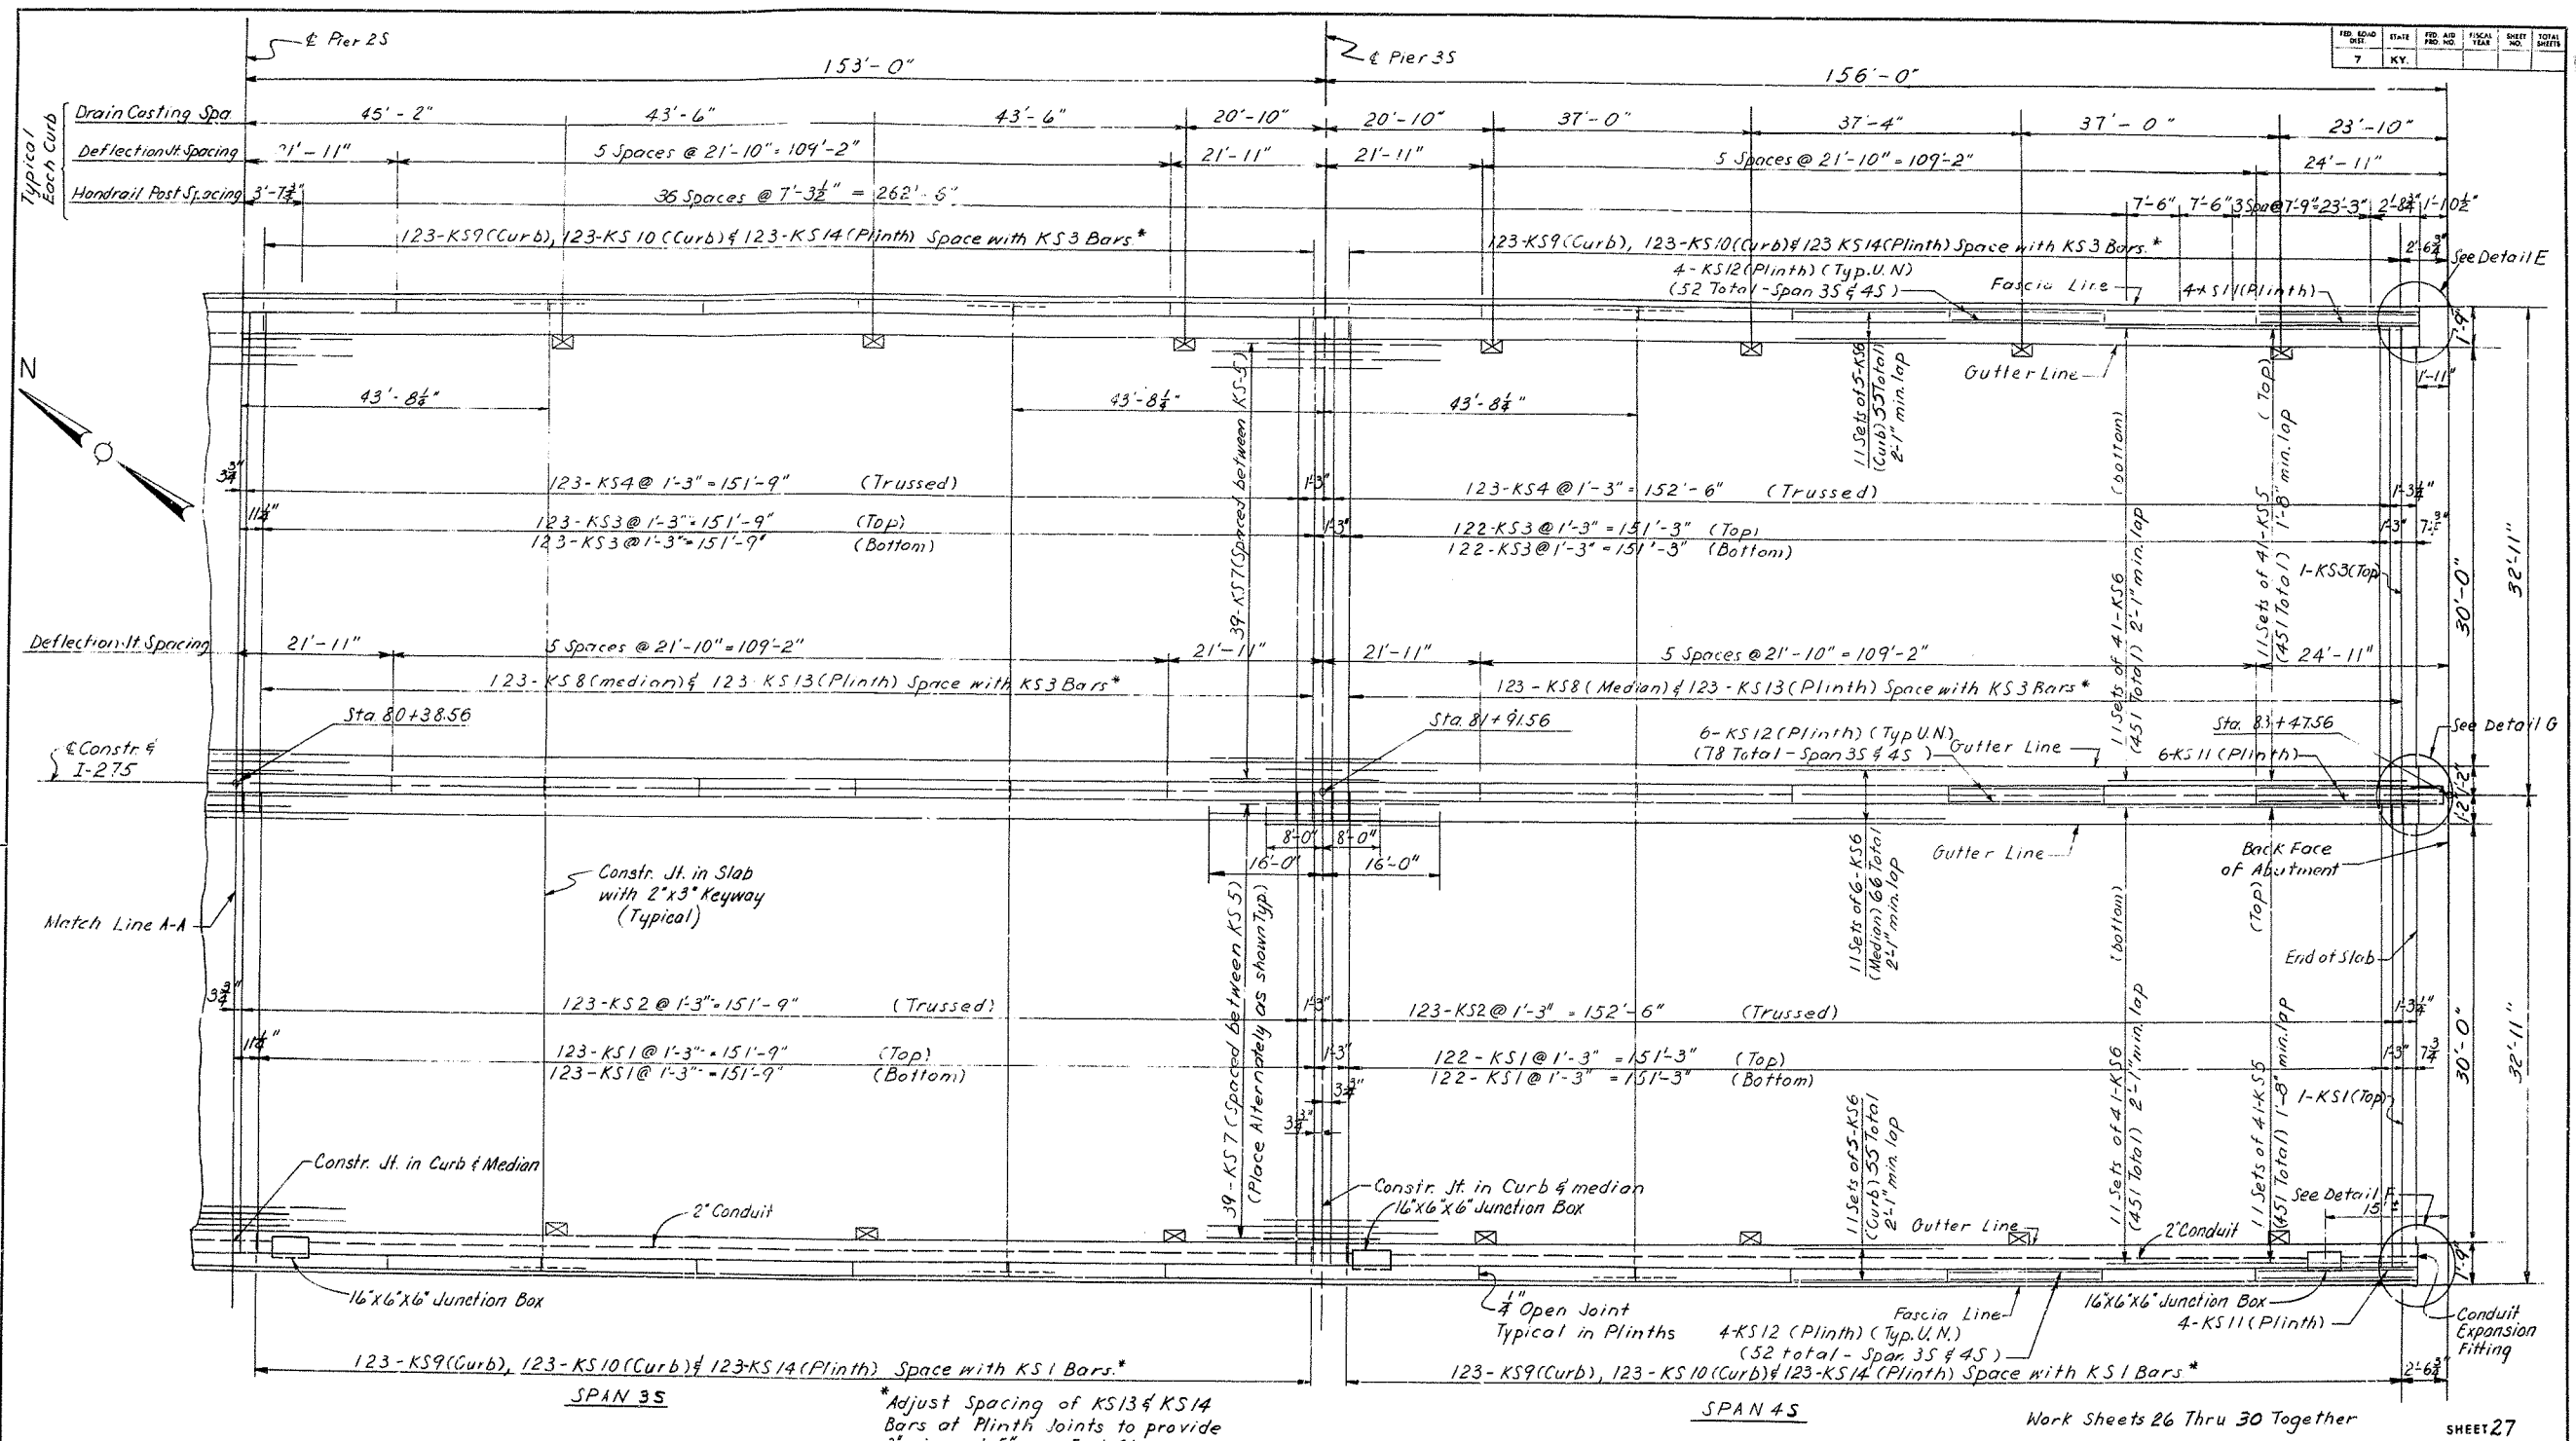 ℄ Pier 2S
℄ Pier 3S
FED. ROAD DIST. STATE FED. AID PRO. NO. FISCAL YEAR SHEET NO. TOTAL SHEETS
7 KY.
153'-0"
156'-0"
Typical Each Curb
Drain Casting Spa. 45'-2" 43'-6" 43'-6" 20'-10" 20'-10" 37'-0" 37'-4" 37'-0" 23'-10"
Deflection Jt. Spacing 21'-11" 5 Spaces @ 21'-10" = 109'-2" 21'-11" 21'-11" 5 Spaces @ 21'-10" = 109'-2" 24'-11"
Handrail Post Spacing 3'-7¾" 36 Spaces @ 7'-3½" = 262'-6" 7'-6" 7'-6" 3 Spa @ 7'-9" = 23'-3" 2'-8¾" 1'-10½"
123-KS9(Curb), 123-KS10(Curb) & 123-KS14(Plinth) Space with KS3 Bars.*
123-KS9(Curb), 123-KS10(Curb) & 123 KS14(Plinth) Space with KS3 Bars.*
2'-6¾"
See Detail E
4-KS12(Plinth)(Typ. U.N)
(52 Total-Span 3S & 4S)
Fascia Line
4-KS11(Plinth)
1'-9"
N
Gutter Line
1'-11"
43'-8¼"
43'-8¼"
43'-8¼"
39-KS7(Spaces between KS-5)
11 Sets of 5-KS6
(Curb) 55 Total
2'-1" min. lap
(bottom)
(Top)
3¾"
123-KS4 @ 1'-3" = 151'-9" (Trussed)
1'-3"
123-KS4 @ 1'-3" = 152'-6" (Trussed)
1'-3¼"
11¼"
123-KS3 @ 1'-3" = 151'-9" (Top)
123-KS3 @ 1'-3" = 151'-9" (Bottom)
1'-3"
122-KS3 @ 1'-3" = 151'-3" (Top)
122-KS3 @ 1'-3" = 151'-3" (Bottom)
1'-3"
11 Sets of 41-KS6
(451 Total) 2'-1" min. lap
11 Sets of 41-KS5
(451 Total) 1'-8" min. lap
1-KS3(Top)
30'-0"
32'-11"
Deflection Jt. Spacing 21'-11" 5 Spaces @ 21'-10" = 109'-2" 21'-11" 21'-11" 5 Spaces @ 21'-10" = 109'-2" 24'-11"
123-KS8(median) & 123 KS13(Plinth) Space with KS3 Bars*
123-KS8(Median) & 123-KS13(Plinth) Space with KS3 Bars*
Sta. 80+38.56
Sta. 81+91.56
Sta. 83+47.56
See Detail G
℄ Constr. &
I-275
6-KS12(Plinth)(Typ U.N)
(78 Total-Span 3S & 4S)
Gutter Line
6-KS11(Plinth)
1'-2"
1'-2"
8'-0" 8'-0"
16'-0" 16'-0"
Constr. Jt. in Slab
with 2"x3" Keyway
(Typical)
Match Line A-A
39-KS7(Spaced between KS5)
(Place Alternately as shown Typ.)
11 Sets of 6-KS6
(Median) 66 Total
2'-1" min. lap
Gutter Line
Back Face
of Abutment
(bottom)
(Top)
End of Slab
3¾"
123-KS2 @ 1'-3" = 151'-9" (Trussed)
1'-3"
123-KS2 @ 1'-3" = 152'-6" (Trussed)
1'-3¼"
11¼"
123-KS1 @ 1'-3" = 151'-9" (Top)
123-KS1 @ 1'-3" = 151'-9" (Bottom)
1'-3"
122-KS1 @ 1'-3" = 151'-3" (Top)
122-KS1 @ 1'-3" = 151'-3" (Bottom)
1'-3" 7¾"
3¾"
3¾"
11 Sets of 5-KS6
(Curb) 55 Total
2'-1" min. lap
11 Sets of 41-KS6
(451 Total) 2'-1" min. lap
11 Sets of 41-KS5
(451 Total) 1'-8" min. lap
1-KS1(Top)
30'-0"
32'-11"
Constr. Jt. in Curb & Median
Constr. Jt. in Curb & median
16"x6"x6" Junction Box
2" Conduit
Gutter Line
2" Conduit
See Detail F
15'
1'-9"
16"x6"x6" Junction Box
¼" Open Joint
Typical in Plinths
Fascia Line
4-KS12 (Plinth)(Typ. U.N.)
(52 total-Span 3S & 4S)
16"x6"x6" Junction Box
4-KS11(Plinth)
Conduit
Expansion
Fitting
123-KS9(Curb), 123-KS10(Curb) & 123-KS14(Plinth) Space with KS1 Bars.*
123-KS9(Curb), 123-KS10(Curb) & 123-KS14(Plinth) Space with KS1 Bars.*
2'-6¾"
SPAN 3S
*Adjust Spacing of KS13 & KS14
Bars at Plinth Joints to provide
SPAN 4S
Work Sheets 26 Thru 30 Together
SHEET 27